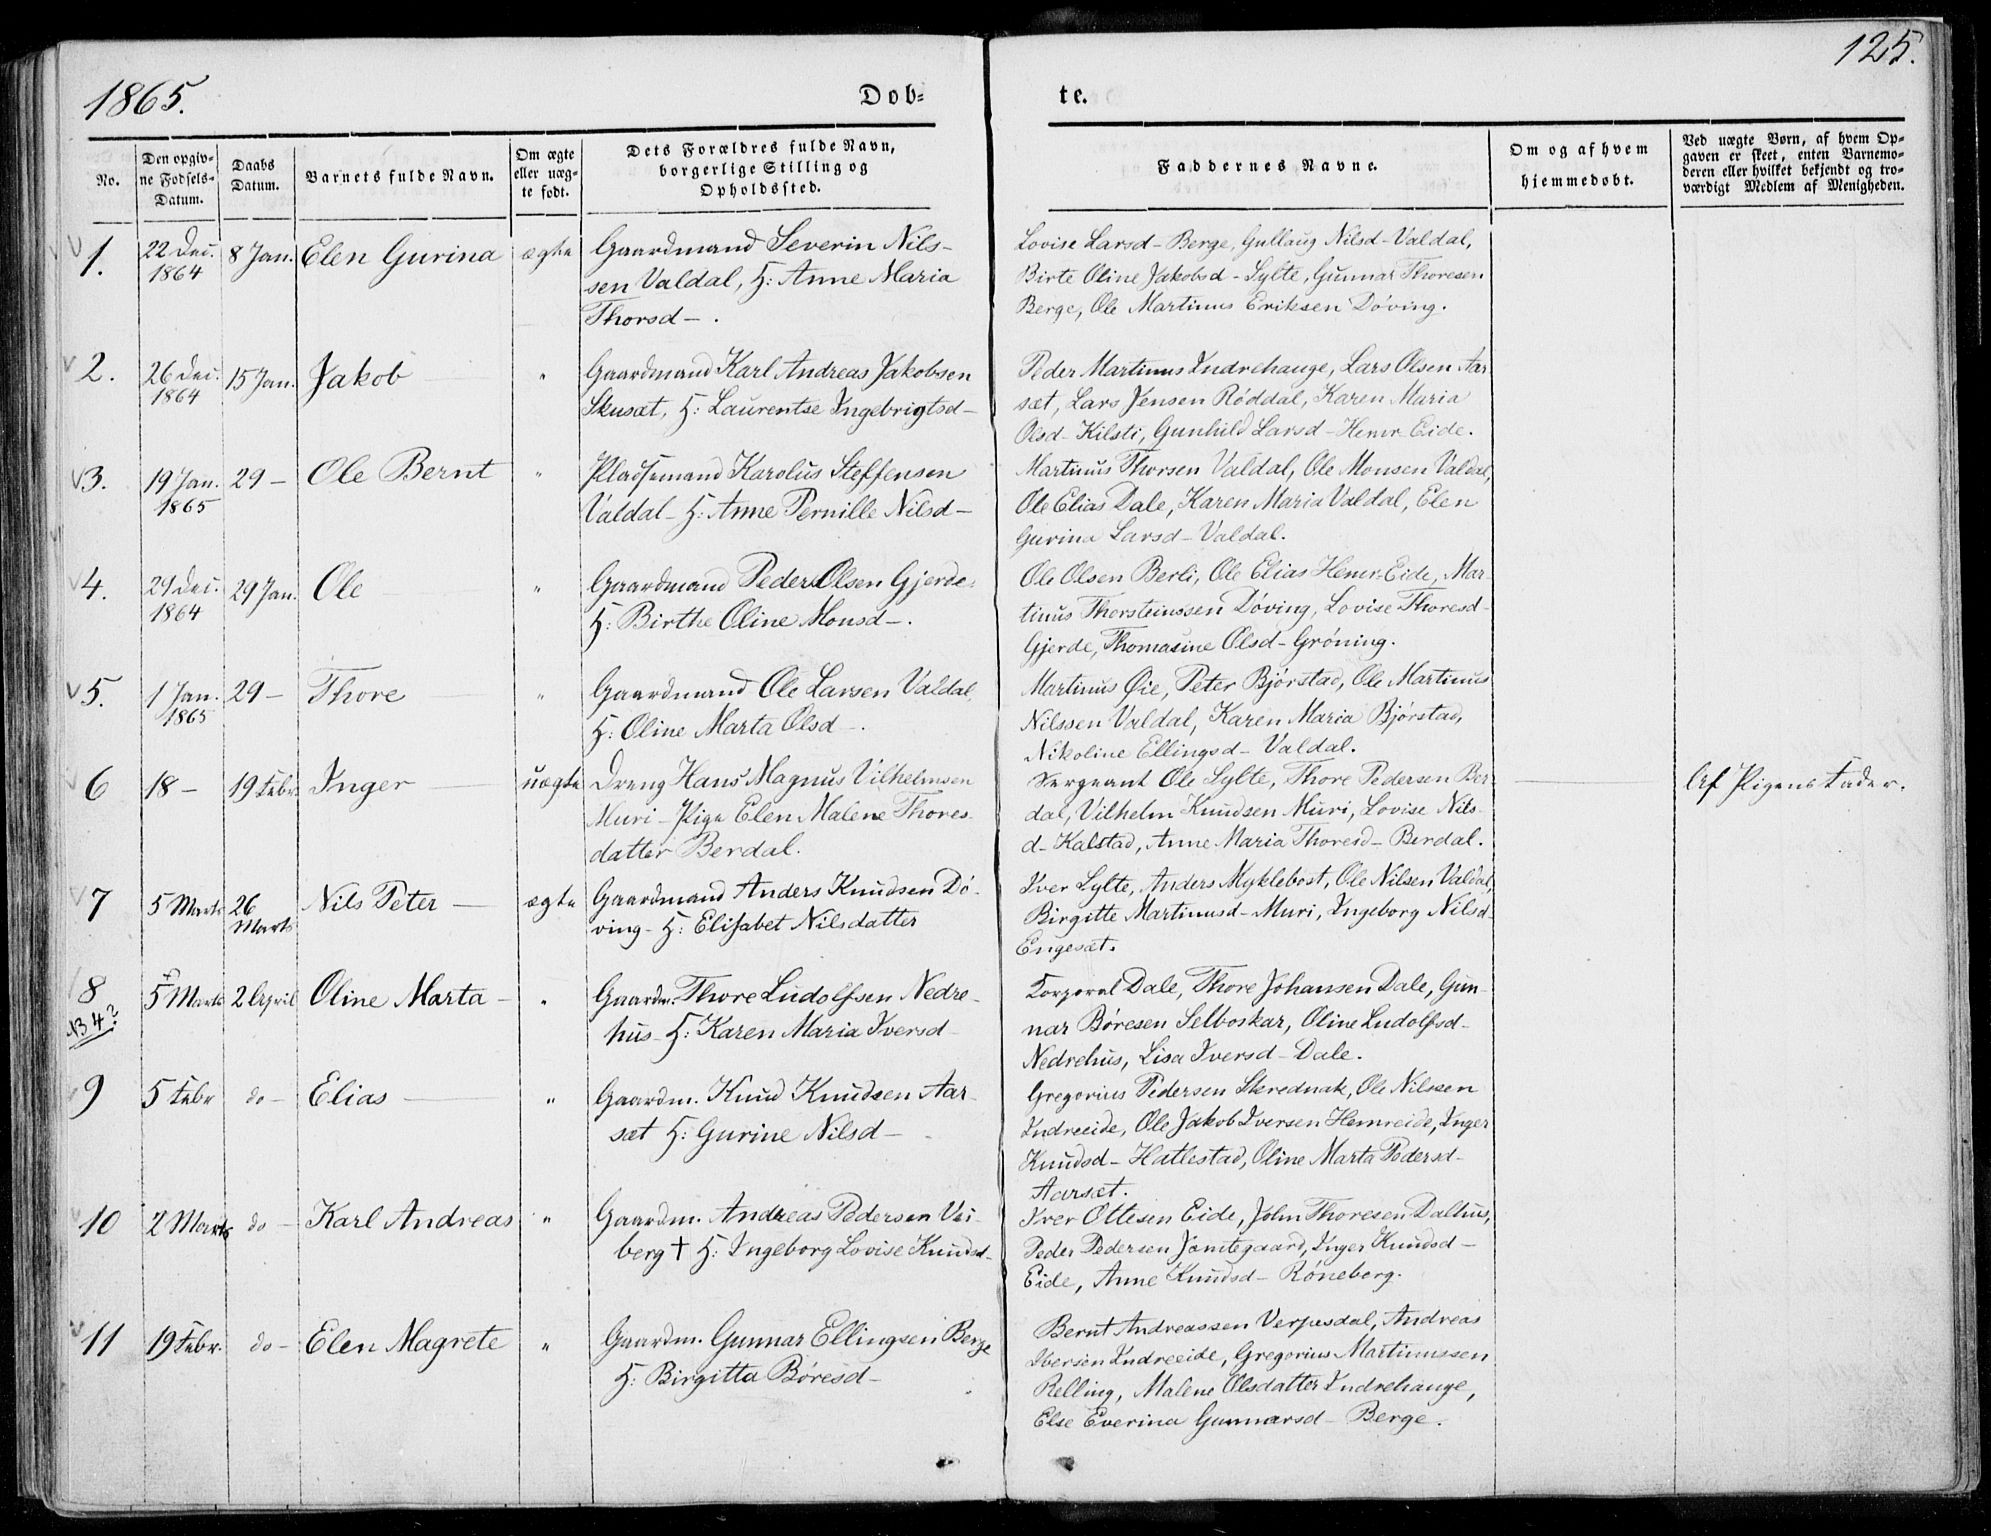 1865.
Dob-
te.
125.
No.
Den opgiv-
ne Fodsels-
Datum.
Daabs
Datum.
Barnets fulde Navn.
Om ægte
eller uæg-
te født.
Dets Forældres fulde Navn,
borgerlige Stilling og
Opholdssted.
Faddernes Navne.
Om og af hvem
hjemmedobt.
Ved uægte Born, af hvem Op-
gaven er skeet, enten Barnemo-
deren eller hvilket bekjendt og tro-
værdigt Medlem af Menigheden.
1. 22 Dec. 1864 8 Jan. Elen Gurina ægte
Gaardmand Severin Nils-
sen Valdal, H: Anne Maria
Thorsd-.
Lovise Larsd- Berge, Gullaug Nilsd- Valdal,
Birte Oline Jakobsd- Sylte, Gunnar Thoresen
Berge, Ole Martinus Eriksen Döving.
2. 26 Dec. 1864 15 Jan. Jakob "
Gaardmand Karl Andreas Jakobsen
Skusæt, H: Laurentse Ingebrigtsd-
Peder Martinus Indrehauge, Lars Olsen Aar
sæt, Lars Jensen Röddal, Karen Maria
Olsd- Kilsti, Gunhild Larsd- Hemr-Eide.
3. 19 Jan. 1865 29 - Ole Bernt "
Pladsemand Karolus Steffensen
Valdal- H: Anne Pernille Nilsd-
Martinus Thorsen Valdal, Ole Monsen Valdal,
Ole Elias Dale, Karen Maria Valdal, Elen
Gurina Larsd- Valdal.
4. 29 Dec. 1864 29 Jan. Ole "
Gaardmand Peder Olsen Gjerde-
H: Birthe Oline Monsd-.
Ole Olsen Berli, Ole Elias Hemr-Eide, Mar-
tinus Thorsteinssen Döving, Lovise Thoresd-
Gjerde, Thomasine Olsd- Gröning.
5. 1 Jan. 1865 29 - Thore "
Gaardmand Ole Larsen Valdal,
H: Oline Marta Olsd-.
Martinus Øie, Peter Björstad, Ole Martinus
Nilssen Valdal, Karen Maria Björstad,
Nikoline Ellingsd- Valdal.
6 18 - 19 Febr. Inger uægte
Dreng Hans Magnus Vilhelmsen
Muri- Pige Elen Malene Thores-
datter Berdal.
Sergeant Ole Sylte, Thore Pedersen Ber-
dal, Vilhelm Knudsen Muri, Lovise Nils-
d- Kalstad, Anne Maria Thoresd- Berdal.
Af Pigens Fader.
7 5 Marts 26 Marts Nils Peter ægte
Gaardmand Anders Knudsen Dö-
ving- H: Elisabet Nilsdatter
Iver Sylte, Anders Myklebost, Ole Nilsen Valdal,
Birgitte Martinusd- Muri, Ingeborg Nilsd-
Engesæt.
8 5 Marts 2 April Oline Marta "
Gaardm. Thore Ludolfsen Nedre-
hus- H: Karen Maria Iversd-
Korporal Dale, Thore Johansen Dale, Gun-
nar Böresen Selboskar, Oline Ludolfsd-
Nedrehus, Lisa Iversd- Dale.
9 5 Febr do - Elias "
Gaardm. Knud Knudsen Aar-
sæt H: Gurine Nilsd-
Gregorius Pedersen Skrednak, Ole Nilssen
Indreeide, Ole Jakob Iversen Hemreide, Inger
Knudsd- Hatlestad, Oline Marta Pedersd-
Aarsæt.
10 2 Marts do - Karl Andreas "
Gaardm. Andreas Pedersen Vei-
berg † H: Ingeborg Lovise Knudsd-
Iver Ottesen Eide, John Thoresen Dalhus,
Peder Pedersen Jamtegaard, Inger Knudsd-
Eide, Anne Knudsd- Röneberg.
11 19 Febr. do - Elen Magrete "
Gaardm. Gunnar Ellingsen Berge
H: Birgitta Böresd-
Bernt Andreassen Verpesdal, Andreas
Iversen Indreeide, Gregorius Martinussen
Relling, Malene Olsdatter Indrehauge,
Else Everina Gunnarsd- Berge.